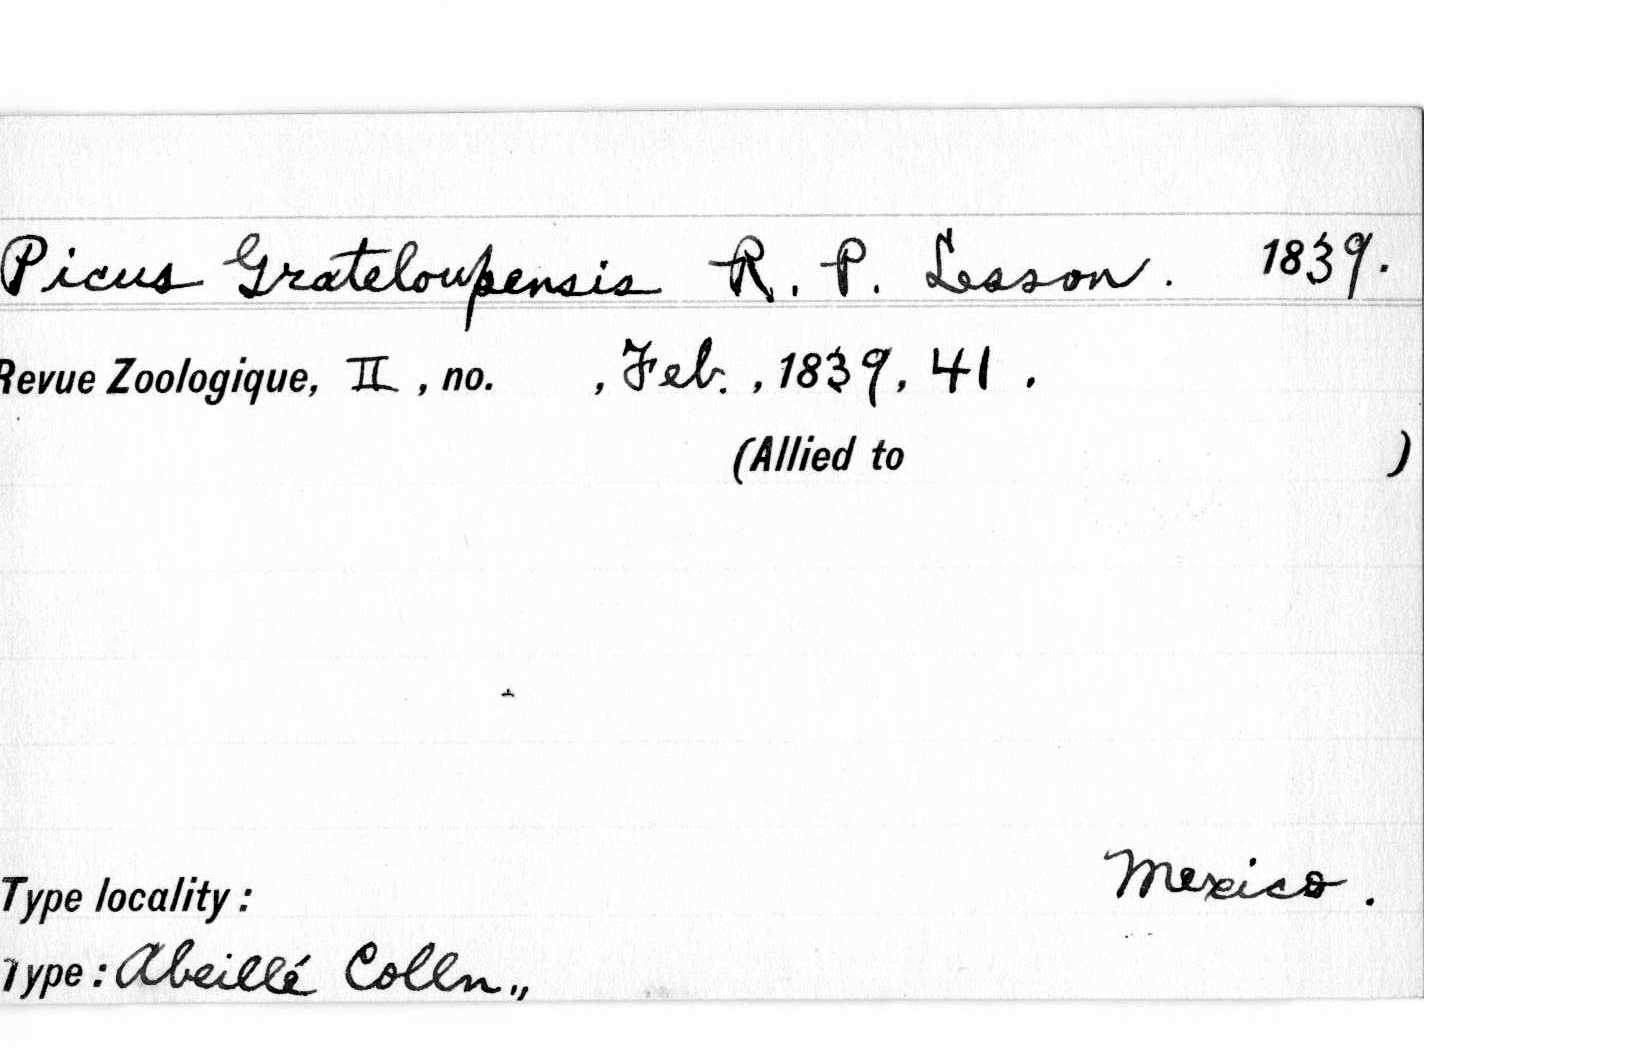 Picus Grateloupensis R. P. Lesson. 1839.
Revue Zoologique, II, no. , Feb., 1839, 41.
(Allied to )
Type locality: Mexico.
Type: Abeillé Colln.,